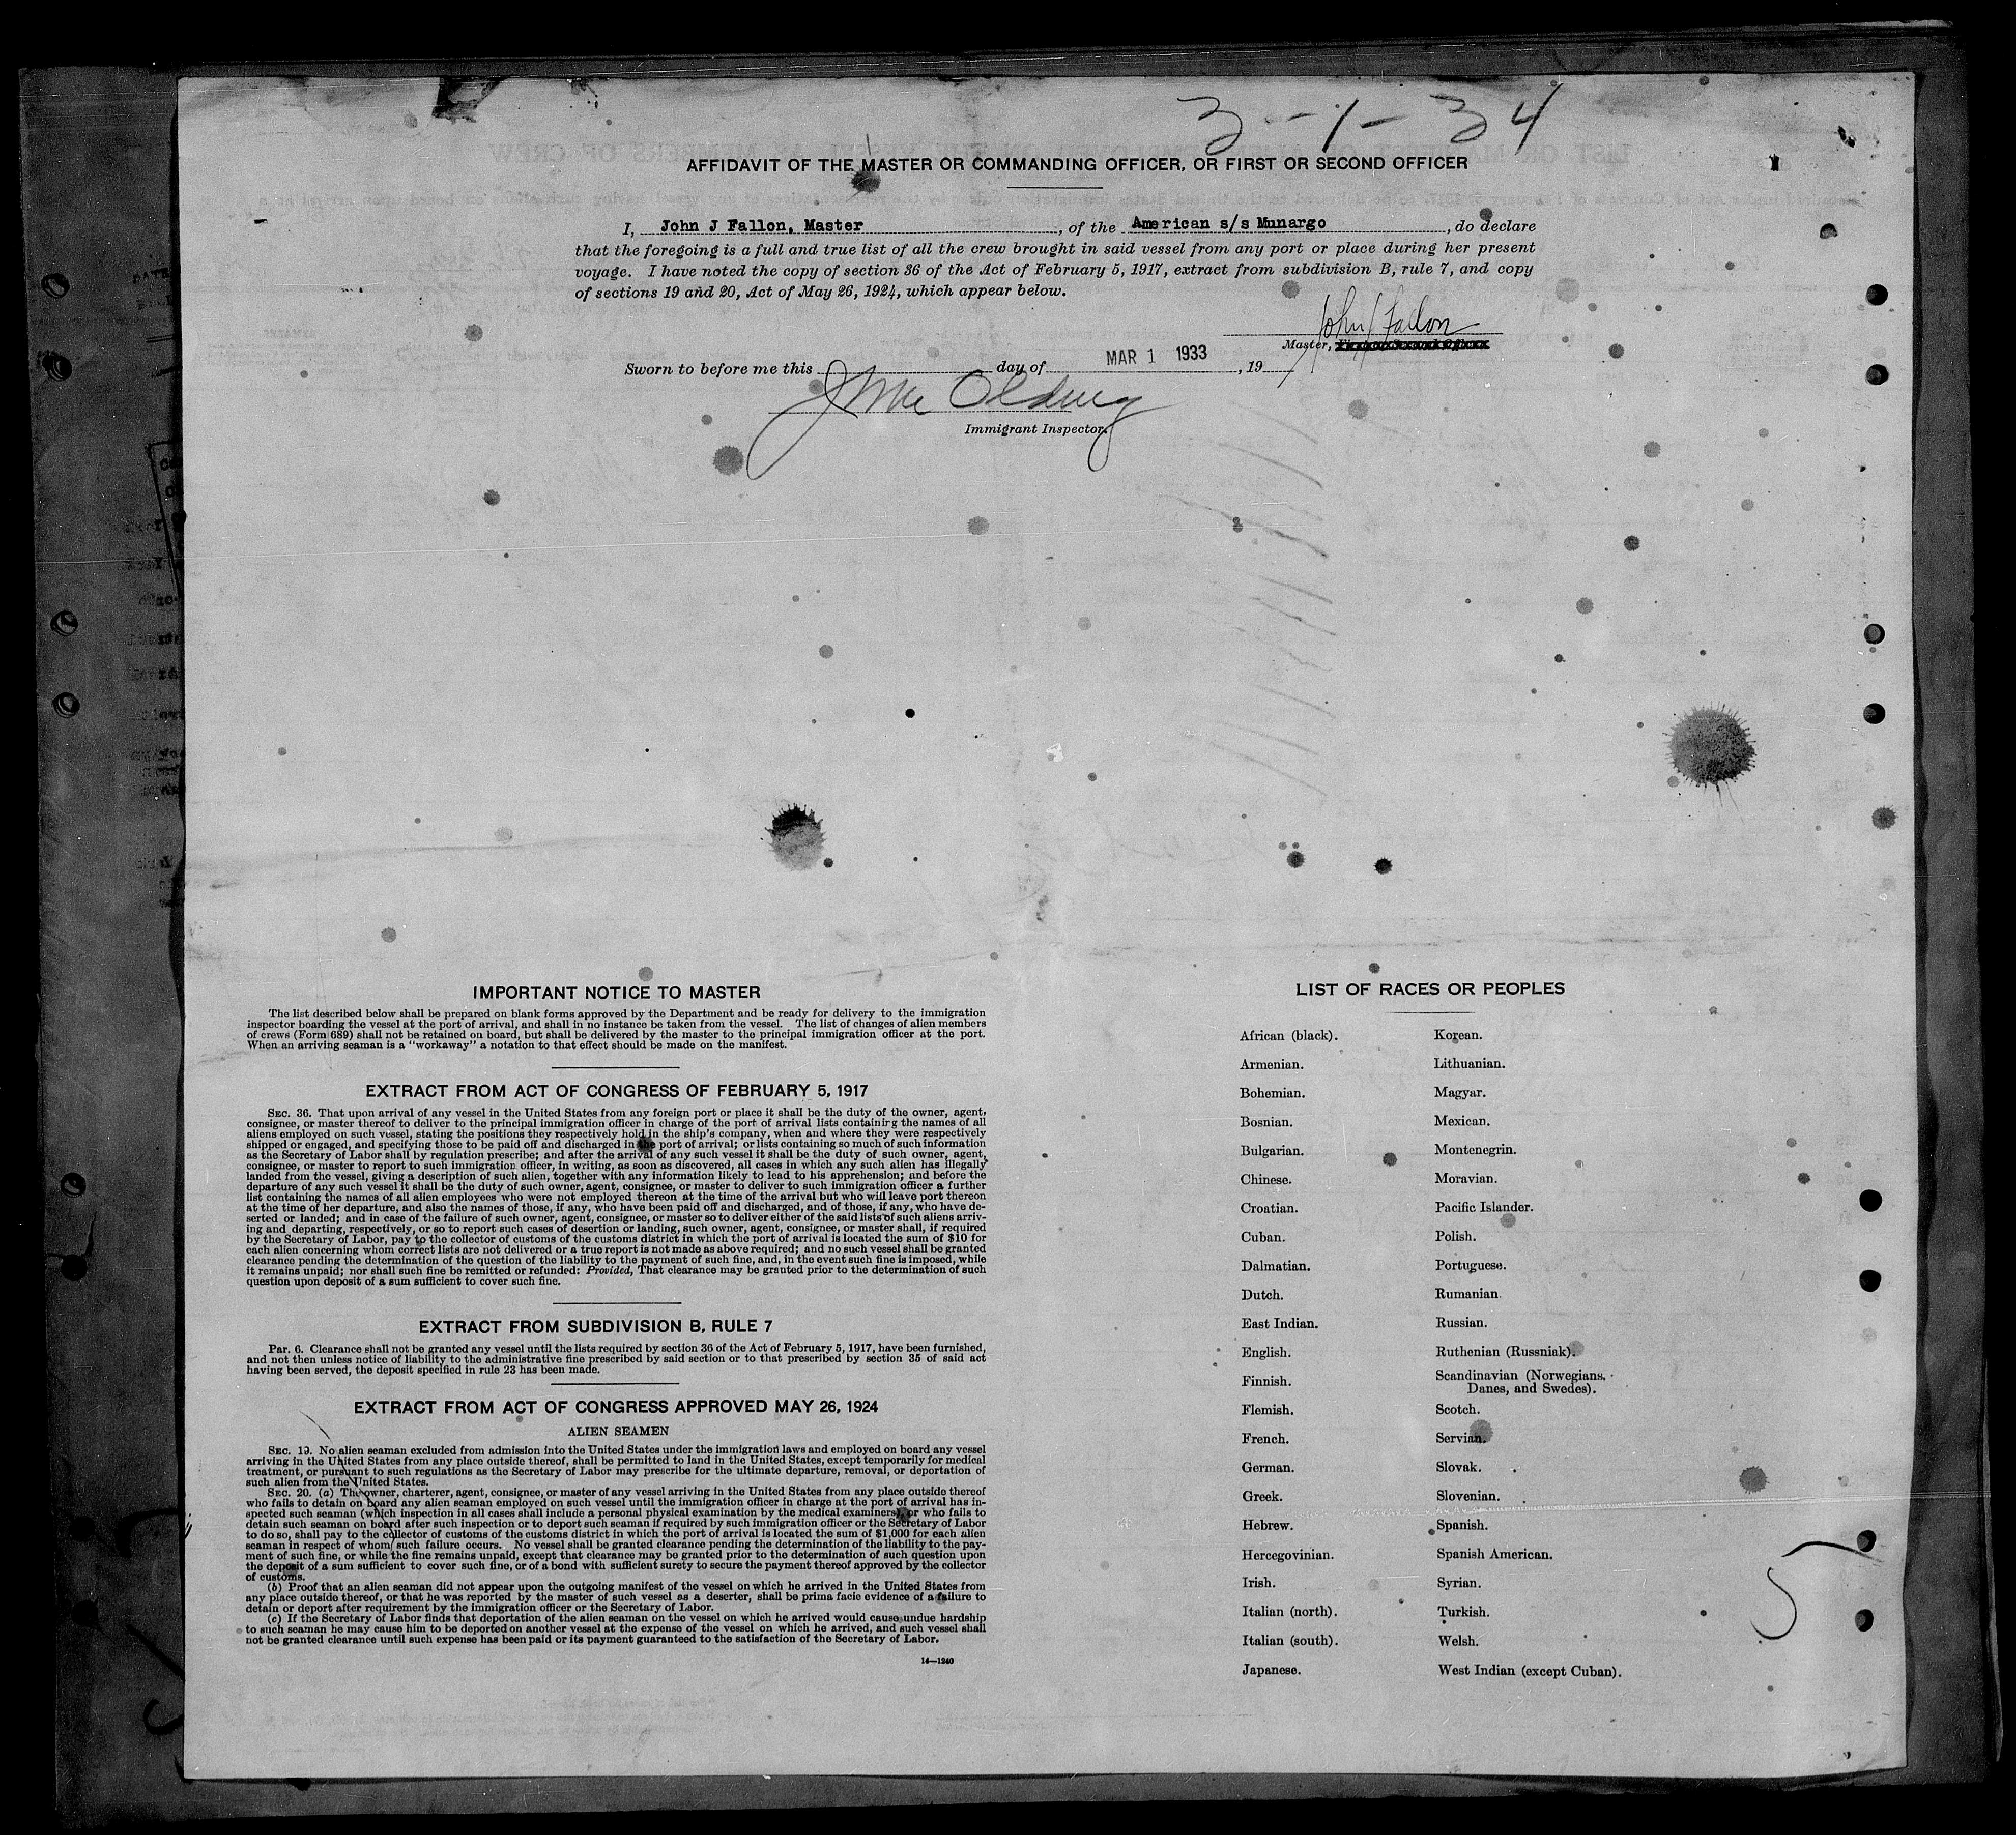 3-1-34
AFFIDAVIT OF THE MASTER OR COMMANDING OFFICER, OR FIRST OR SECOND OFFICER
I, John J Fallon, Master, of the American s/s Munargo, do declare
that the foregoing is a full and true list of all the crew brought in said vessel from any port or place during her present
voyage. I have noted the copy of section 36 of the Act of February 5, 1917, extract from subdivision B, rule 7, and copy
of sections 19 and 20, Act of May 26, 1924, which appear below.
John J Fallon
Master,
Sworn to before me this day of MAR 1 1933, 19
Immigrant Inspector.
IMPORTANT NOTICE TO MASTER
The list described below shall be prepared on blank forms approved by the Department and be ready for delivery to the immigration
inspector boarding the vessel at the port of arrival, and shall in no instance be taken from the vessel. The list of changes of alien members
of crews (Form 689) shall not be retained on board, but shall be delivered by the master to the principal immigration officer at the port.
When an arriving seaman is a "workaway" a notation to that effect should be made on the manifest.
EXTRACT FROM ACT OF CONGRESS OF FEBRUARY 5, 1917
SEC. 36. That upon arrival of any vessel in the United States from any foreign port or place it shall be the duty of the owner, agent,
consignee, or master thereof to deliver to the principal immigration officer in charge of the port of arrival lists containing the names of all
aliens employed on such vessel, stating the positions they respectively hold in the ship's company, when and where they were respectively
shipped or engaged, and specifying those to be paid off and discharged in the port of arrival; or lists containing so much of such information
as the Secretary of Labor shall by regulation prescribe; and after the arrival of any such vessel it shall be the duty of such owner, agent,
consignee, or master to report to such immigration officer, in writing, as soon as discovered, all cases in which any such alien has illegally
landed from the vessel, giving a description of such alien, together with any information likely to lead to his apprehension; and before the
departure of any such vessel it shall be the duty of such owner, agent, consignee, or master to deliver to such immigration officer a further
list containing the names of all alien employees who were not employed thereon at the time of the arrival but who will leave port thereon
at the time of her departure, and also the names of those, if any, who have been paid off and discharged, and of those, if any, who have de-
serted or landed; and in case of the failure of such owner, agent, consignee, or master so to deliver either of the said lists of such aliens arriv-
ing and departing, respectively, or so to report such cases of desertion or landing, such owner, agent, consignee, or master shall, if required
by the Secretary of Labor, pay to the collector of customs of the customs district in which the port of arrival is located the sum of $10 for
each alien concerning whom correct lists are not delivered or a true report is not made as above required; and no such vessel shall be granted
clearance pending the determination of the question of the liability to the payment of such fine, and, in the event such fine is imposed, while
it remains unpaid; nor shall such fine be remitted or refunded: Provided, That clearance may be granted prior to the determination of such
question upon deposit of a sum sufficient to cover such fine.
EXTRACT FROM SUBDIVISION B, RULE 7
Par. 6. Clearance shall not be granted any vessel until the lists required by section 36 of the Act of February 5, 1917, have been furnished,
and not then unless notice of liability to the administrative fine prescribed by said section or to that prescribed by section 35 of said act
having been served, the deposit specified in rule 23 has been made.
EXTRACT FROM ACT OF CONGRESS APPROVED MAY 26, 1924
ALIEN SEAMEN
SEC. 19. No alien seaman excluded from admission into the United States under the immigration laws and employed on board any vessel
arriving in the United States from any place outside thereof, shall be permitted to land in the United States, except temporarily for medical
treatment, or pursuant to such regulations as the Secretary of Labor may prescribe for the ultimate departure, removal, or deportation of
such alien from the United States.
SEC. 20. (a) The owner, charterer, agent, consignee, or master of any vessel arriving in the United States from any place outside thereof
who fails to detain on board any alien seaman employed on such vessel until the immigration officer in charge at the port of arrival has in-
spected such seaman (which inspection in all cases shall include a personal physical examination by the medical examiners), or who fails to
detain such seaman on board after such inspection or to deport such seaman if required by such immigration officer or the Secretary of Labor
to do so, shall pay to the collector of customs of the customs district in which the port of arrival is located the sum of $1,000 for each alien
seaman in respect of whom such failure occurs. No vessel shall be granted clearance pending the determination of the liability to the pay-
ment of such fine, or while the fine remains unpaid, except that clearance may be granted prior to the determination of such question upon
the deposit of a sum sufficient to cover such fine, or of a bond with sufficient surety to secure the payment thereof approved by the collector
of customs.
(b) Proof that an alien seaman did not appear upon the outgoing manifest of the vessel on which he arrived in the United States from
any place outside thereof, or that he was reported by the master of such vessel as a deserter, shall be prima facie evidence of a failure to
detain or deport after requirement by the immigration officer or the Secretary of Labor.
(c) If the Secretary of Labor finds that deportation of the alien seaman on the vessel on which he arrived would cause undue hardship
to such seaman he may cause him to be deported on another vessel at the expense of the vessel on which he arrived, and such vessel shall
not be granted clearance until such expense has been paid or its payment guaranteed to the satisfaction of the Secretary of Labor.
14—1240
LIST OF RACES OR PEOPLES
African (black).
Armenian.
Bohemian.
Bosnian.
Bulgarian.
Chinese.
Croatian.
Cuban.
Dalmatian.
Dutch.
East Indian.
English.
Finnish.
Flemish.
French.
German.
Greek.
Hebrew.
Hercegovinian.
Irish.
Italian (north).
Italian (south).
Japanese.
Korean.
Lithuanian.
Magyar.
Mexican.
Montenegrin.
Moravian.
Pacific Islander.
Polish.
Portuguese.
Rumanian.
Russian.
Ruthenian (Russniak).
Scandinavian (Norwegians,
Danes, and Swedes).
Scotch.
Servian.
Slovak.
Slovenian.
Spanish.
Spanish American.
Syrian.
Turkish.
Welsh.
West Indian (except Cuban).
5